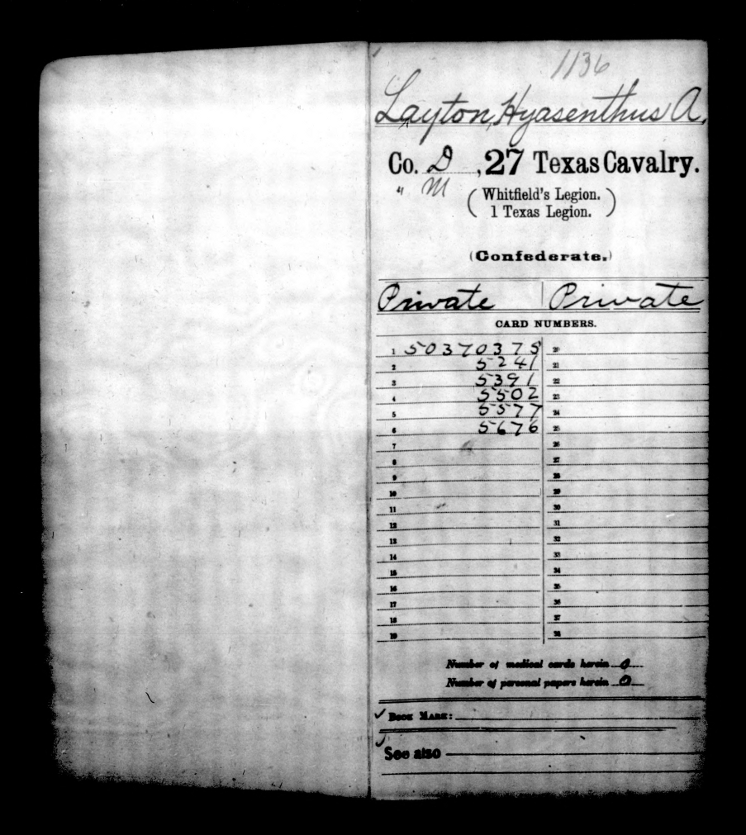 1136
Layton, Hyasenthus A.
Co. D, 27 Texas Cavalry.
" M
(Whitfield's Legion.
1 Texas Legion.)
(Confederate.)
Private | Private
CARD NUMBERS.
1 50370375 20
2 5241 21
3 5391 22
4 5502 23
5 5577 24
6 5676 25
7 26
8 27
9 28
10 29
11 30
12 31
13 32
14 33
15 34
16 35
17 36
18 37
19 38
Number of medical cards herein 0
Number of personal papers herein 0
Book Mark:
See also